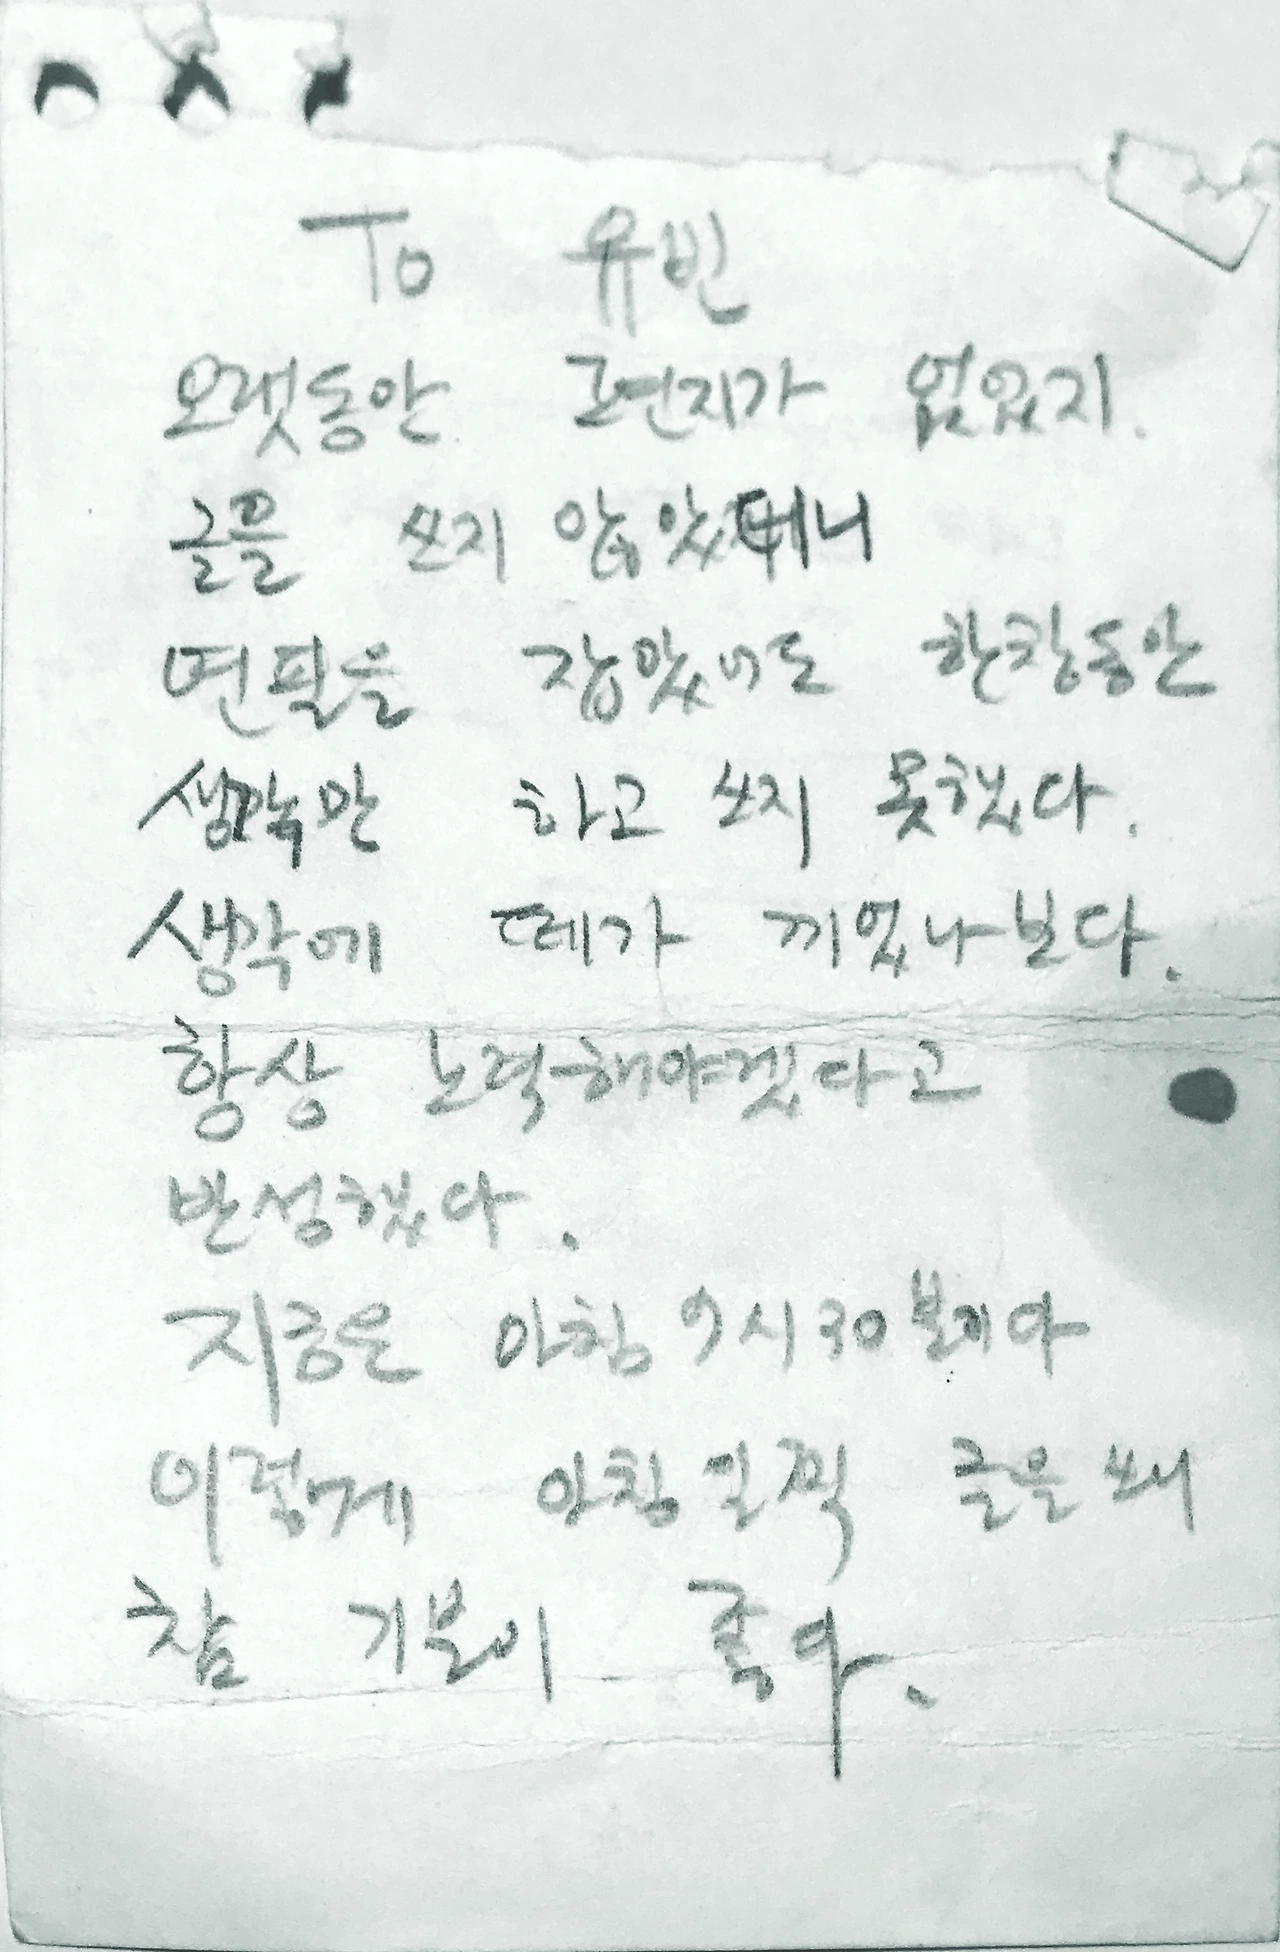 To 유빈
오랫동안 편지가 없었지.
글을 쓰지 않았더니
연필을 잡았어도 한참동안
생각만 하고 쓰지 못했다.
생각에 떼가 끼었나보다.
항상 노력해야겠다고
반성했다.
지금은 아침 9시 30분이야
이렇게 아침 일찍 글을 쓰니
참 기분이 좋아.